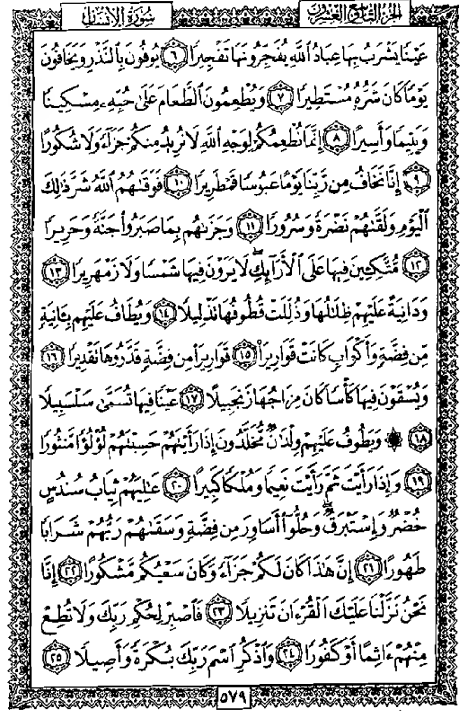 سُورَةُ الإِنسَانِ الجُزْءُ التَّاسِعُ وَالعِشْرُونَ
عَيْنًا يَشْرَبُ بِهَا عِبَادُ ٱللَّهِ يُفَجِّرُونَهَا تَفْجِيرًا ٦ يُوفُونَ بِٱلنَّذْرِ وَيَخَافُونَ
يَوْمًا كَانَ شَرُّهُۥ مُسْتَطِيرًا ٧ وَيُطْعِمُونَ ٱلطَّعَامَ عَلَىٰ حُبِّهِۦ مِسْكِينًا
وَيَتِيمًا وَأَسِيرًا ٨ إِنَّمَا نُطْعِمُكُمْ لِوَجْهِ ٱللَّهِ لَا نُرِيدُ مِنكُمْ جَزَآءً وَلَا شُكُورًا
٩ إِنَّا نَخَافُ مِن رَّبِّنَا يَوْمًا عَبُوسًا قَمْطَرِيرًا ١٠ فَوَقَىٰهُمُ ٱللَّهُ شَرَّ ذَٰلِكَ
ٱلْيَوْمِ وَلَقَّىٰهُمْ نَضْرَةً وَسُرُورًا ١١ وَجَزَىٰهُم بِمَا صَبَرُوا۟ جَنَّةً وَحَرِيرًا
١٢ مُّتَّكِـِٔينَ فِيهَا عَلَى ٱلْأَرَآئِكِ ۖ لَا يَرَوْنَ فِيهَا شَمْسًا وَلَا زَمْهَرِيرًا ١٣
وَدَانِيَةً عَلَيْهِمْ ظِلَٰلُهَا وَذُلِّلَتْ قُطُوفُهَا تَذْلِيلًا ١٤ وَيُطَافُ عَلَيْهِم بِـَٔانِيَةٍ
مِّن فِضَّةٍ وَأَكْوَابٍ كَانَتْ قَوَارِيرَا۠ ١٥ قَوَارِيرَا۟ مِن فِضَّةٍ قَدَّرُوهَا تَقْدِيرًا ١٦
وَيُسْقَوْنَ فِيهَا كَأْسًا كَانَ مِزَاجُهَا زَنجَبِيلًا ١٧ عَيْنًا فِيهَا تُسَمَّىٰ سَلْسَبِيلًا
١٨ ۞ وَيَطُوفُ عَلَيْهِمْ وِلْدَٰنٌ مُّخَلَّدُونَ إِذَا رَأَيْتَهُمْ حَسِبْتَهُمْ لُؤْلُؤًا مَّنثُورًا
١٩ وَإِذَا رَأَيْتَ ثَمَّ رَأَيْتَ نَعِيمًا وَمُلْكًا كَبِيرًا ٢٠ عَٰلِيَهُمْ ثِيَابُ سُندُسٍ
خُضْرٌ وَإِسْتَبْرَقٌ ۖ وَحُلُّوٓا۟ أَسَاوِرَ مِن فِضَّةٍ وَسَقَىٰهُمْ رَبُّهُمْ شَرَابًا
طَهُورًا ٢١ إِنَّ هَٰذَا كَانَ لَكُمْ جَزَآءً وَكَانَ سَعْيُكُم مَّشْكُورًا ٢٢ إِنَّا
نَحْنُ نَزَّلْنَا عَلَيْكَ ٱلْقُرْءَانَ تَنزِيلًا ٢٣ فَٱصْبِرْ لِحُكْمِ رَبِّكَ وَلَا تُطِعْ
مِنْهُمْ ءَاثِمًا أَوْ كَفُورًا ٢٤ وَٱذْكُرِ ٱسْمَ رَبِّكَ بُكْرَةً وَأَصِيلًا ٢٥
٥٧٩